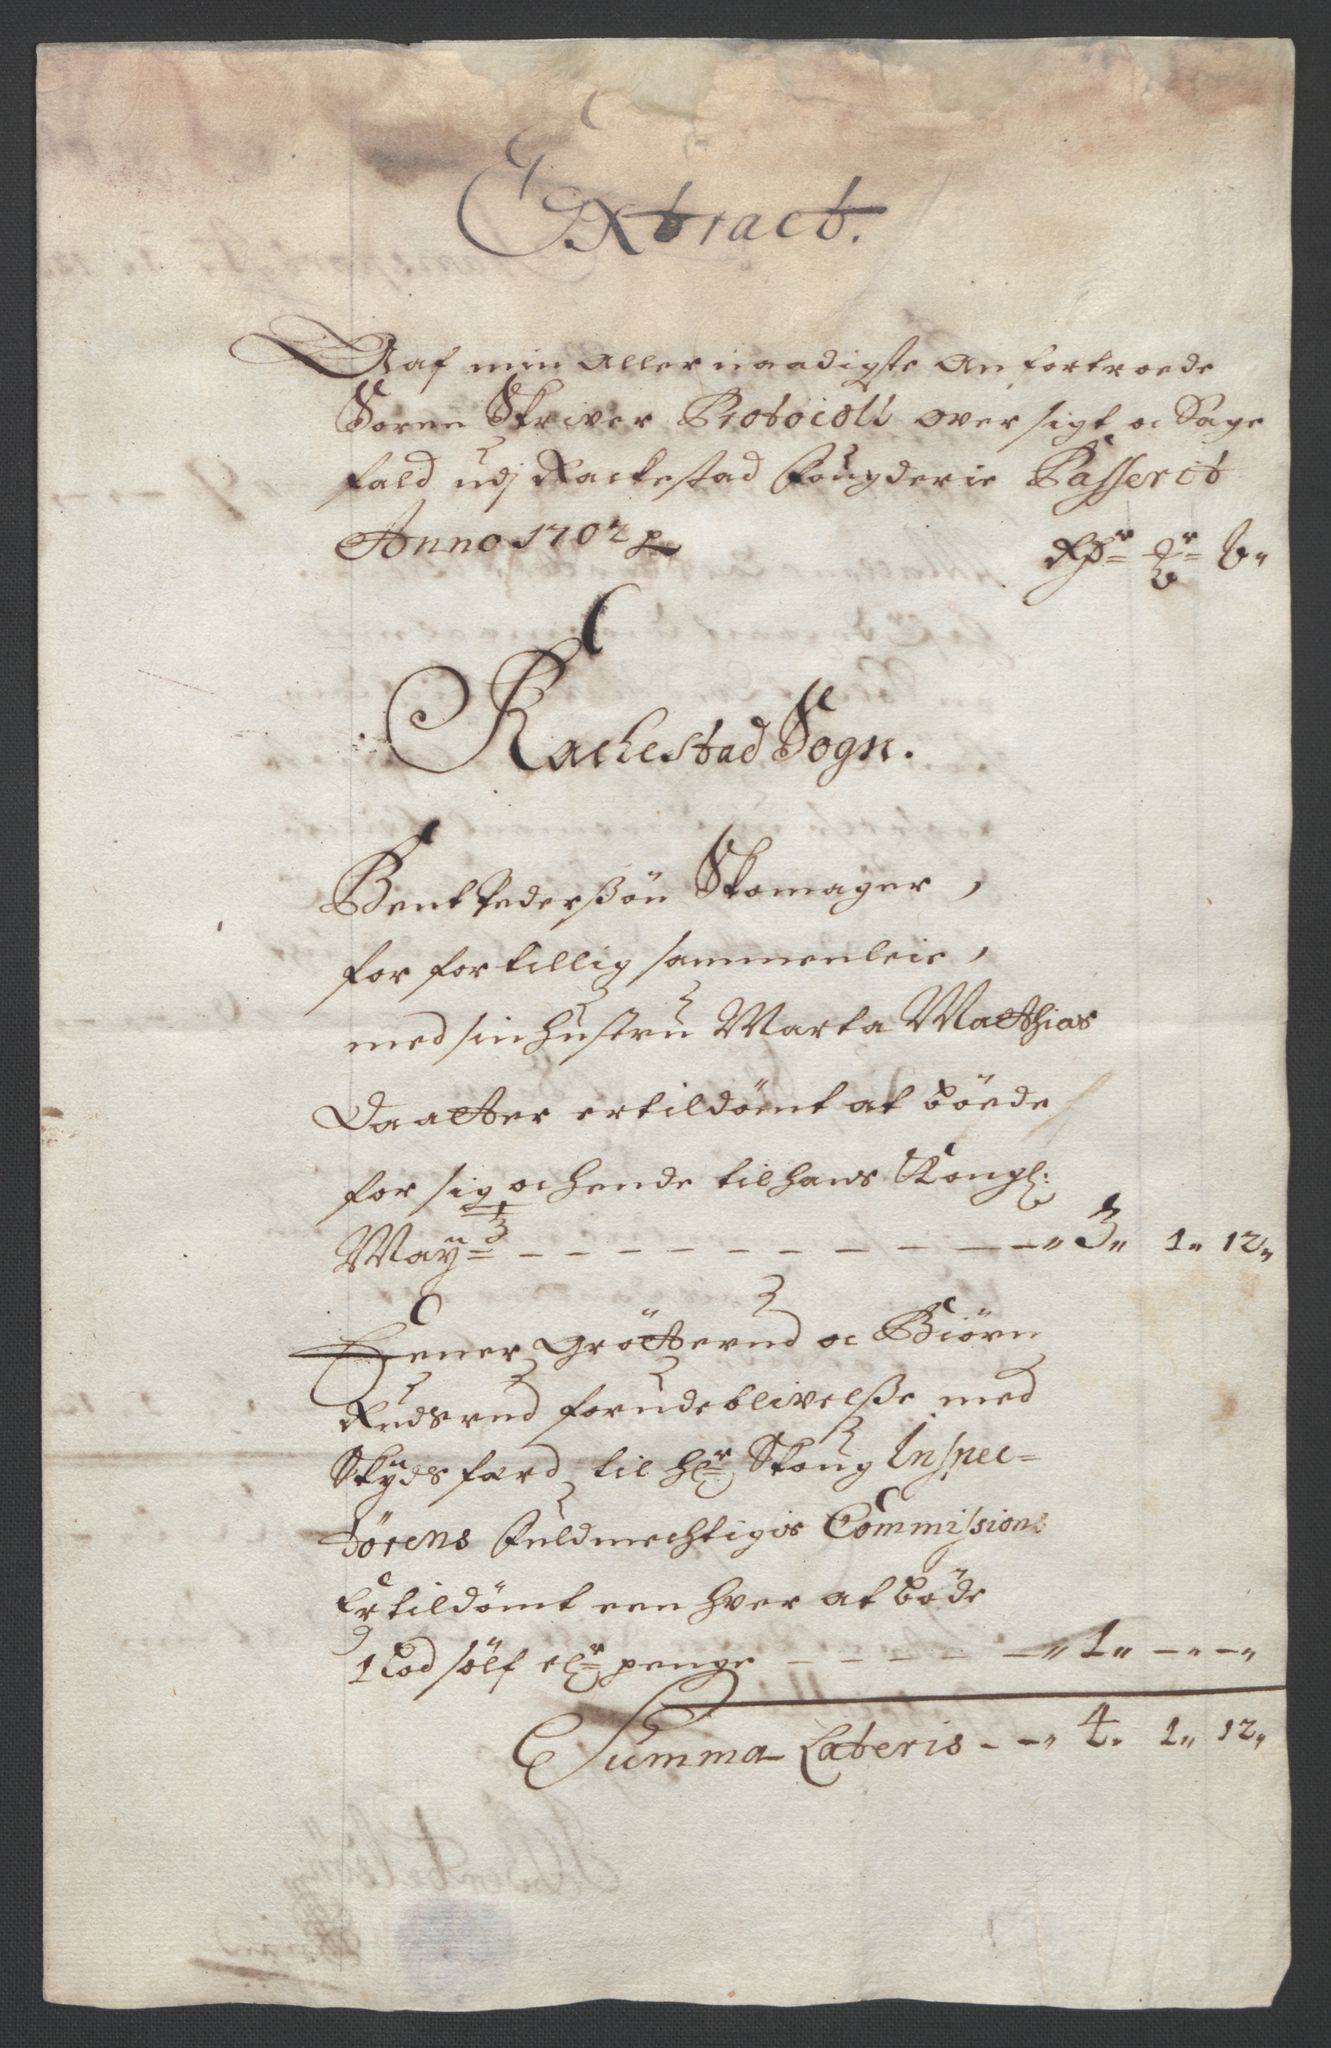 Extract.
Aaf min aller naadigste Anfortroede
Soren Skriver Protocoll over sigt oc Sage
fald udj Rackestad Fougderie Passerit
Anno 1702 p
Rdr ₰r ß„
Rackestad Sogn.
Bent Pederßön Skomager,
for for tillig sammenleie,
med sin hustru Marta Matthias
Daatter er tildömt at böede
for sig oc hende til hans Kongl:
May:tz – – – – – – – – – – – – „ 3„ 1„ 12„
Ener Grötterud oc Biörn
Rudsrud for udeblivelße med
Skydsfærd til Hr Skoug Inspec=
törens Fuldmechtigis Commissions
Er tildömt een hver at böde
1 Lod sölf elr penge – – – – – – „ 1„ –„–„
Summa Lateris – – „ 4„ 1„ 12„